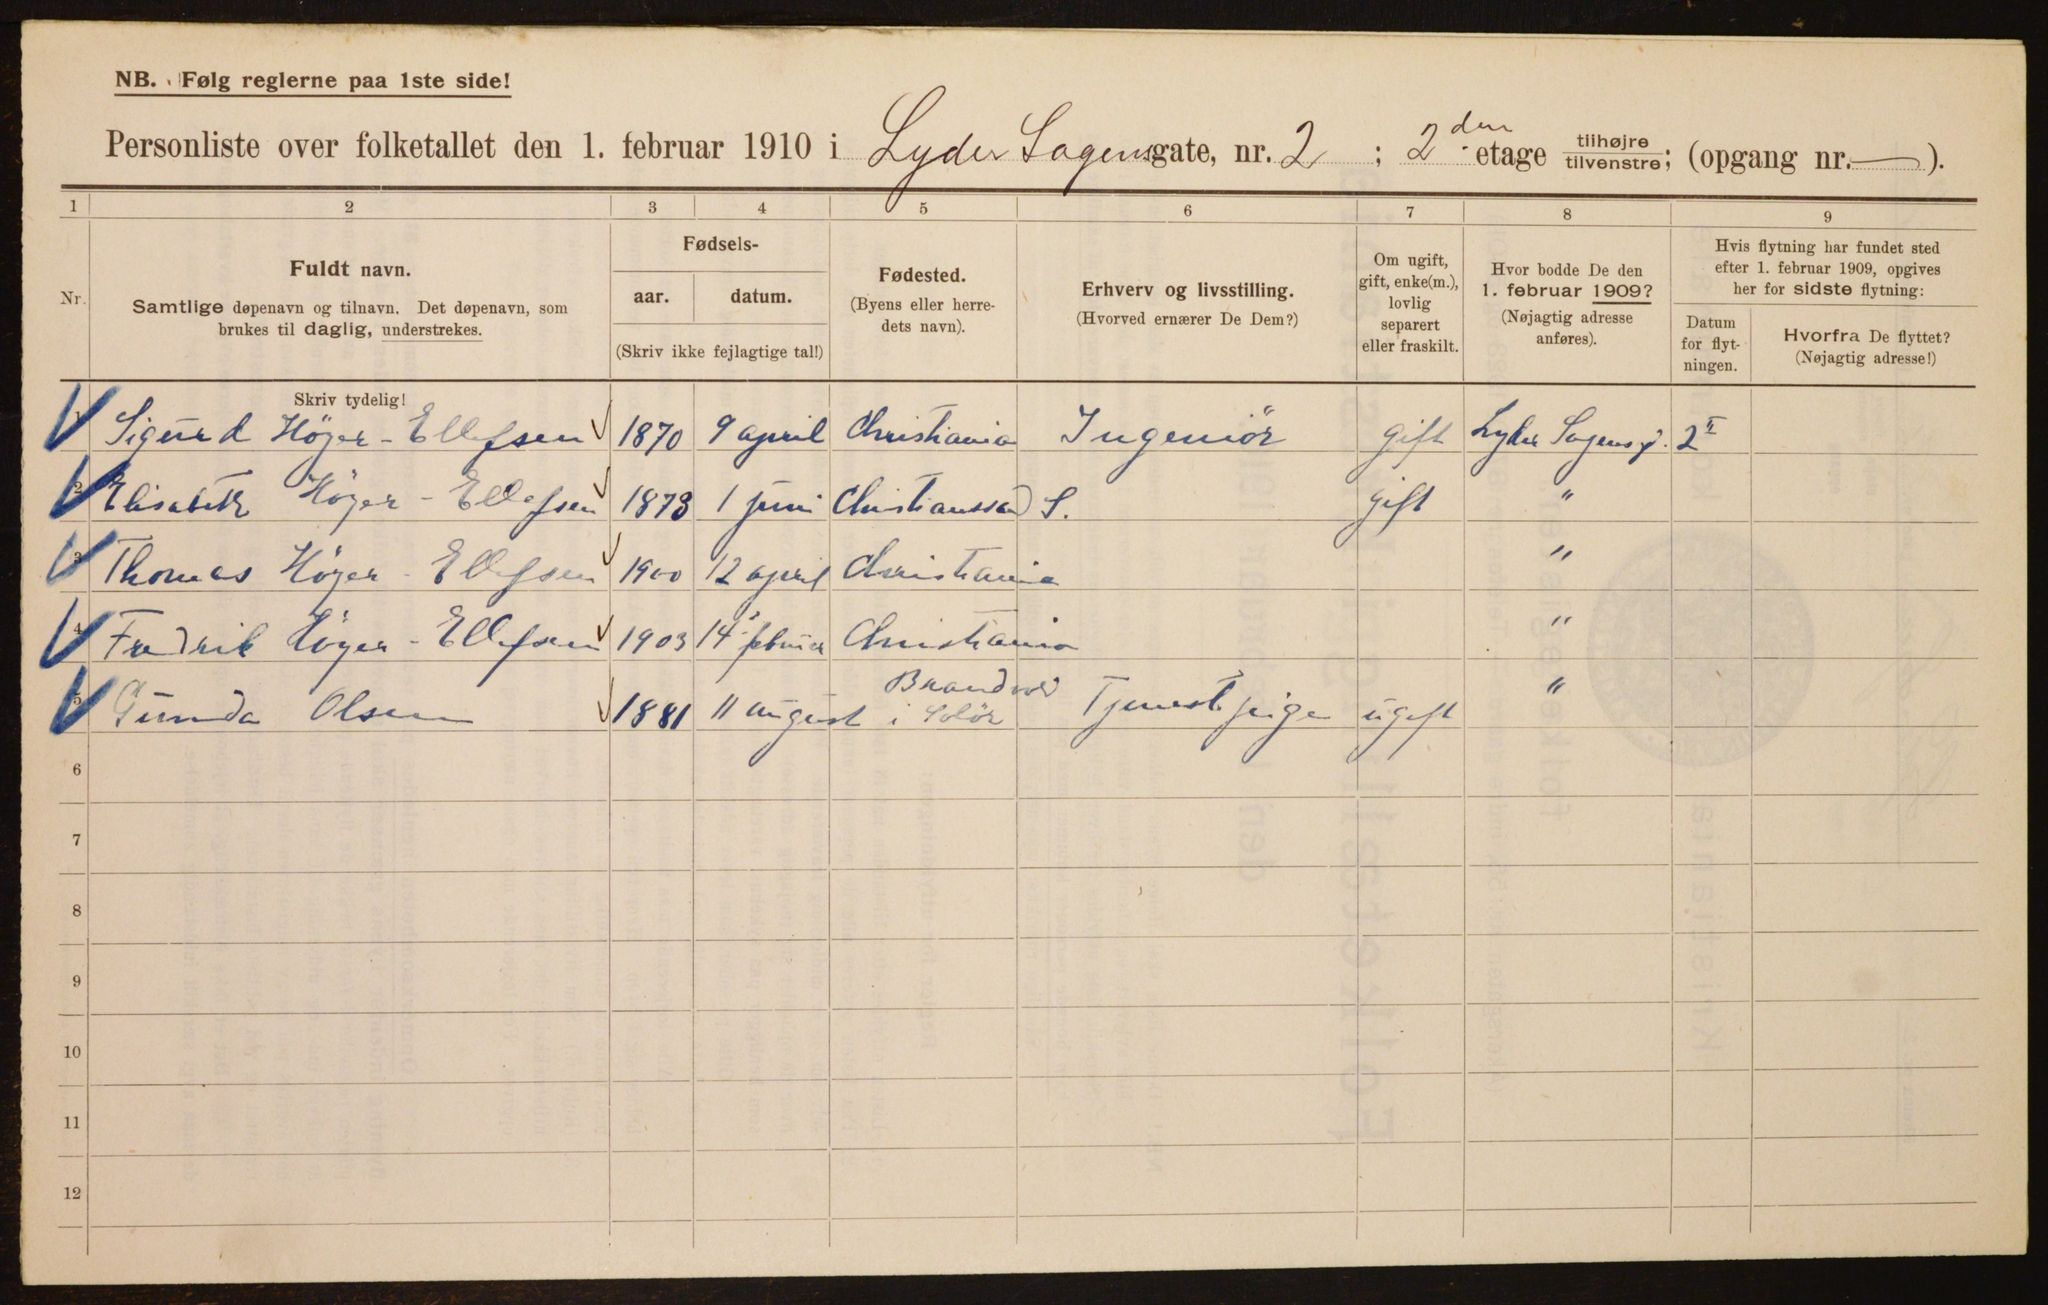 NB. Følg reglerne paa 1ste side!
Personliste over folketallet den 1. februar 1910 i Lyder Sagensgate, nr. 2 ; 2den etage tilhøjre/tilvenstre; (opgang nr. — ).
1 2 3 4 5 6 7 8 9
Nr.
Fuldt navn.
Samtlige døpenavn og tilnavn. Det døpenavn, som
brukes til daglig, understrekes.
Fødsels-
aar. datum.
(Skriv ikke fejlagtige tal!)
Fødested.
(Byens eller herre-
dets navn).
Erhverv og livsstilling.
(Hvorved ernærer De Dem?)
Om ugift,
gift, enke(m.),
lovlig
separert
eller fraskilt.
Hvor bodde De den
1. februar 1909?
(Nøjagtig adresse
anføres).
Hvis flytning har fundet sted
efter 1. februar 1909, opgives
her for sidste flytning:
Datum
for flyt-
ningen.
Hvorfra De flyttet?
(Nøjagtig adresse!)
Skriv tydelig!
1 Sigurd Höyer-Ellefsen 1870 9 april Christiania Ingeniör gift Lyder Sagensg. 2 II
2 Elisabeth Höyer-Ellefsen 1873 1 juni Christianssand S. gift "
3 Thomas Höyer-Ellefsen 1900 12 april Christiania "
4 Fredrik Höyer-Ellefsen 1903 14 februar Christiania "
5 Gunda Olsen 1881 11 august Brandvold i Solör Tjenestpige ugift "
6
7
8
9
10
11
12